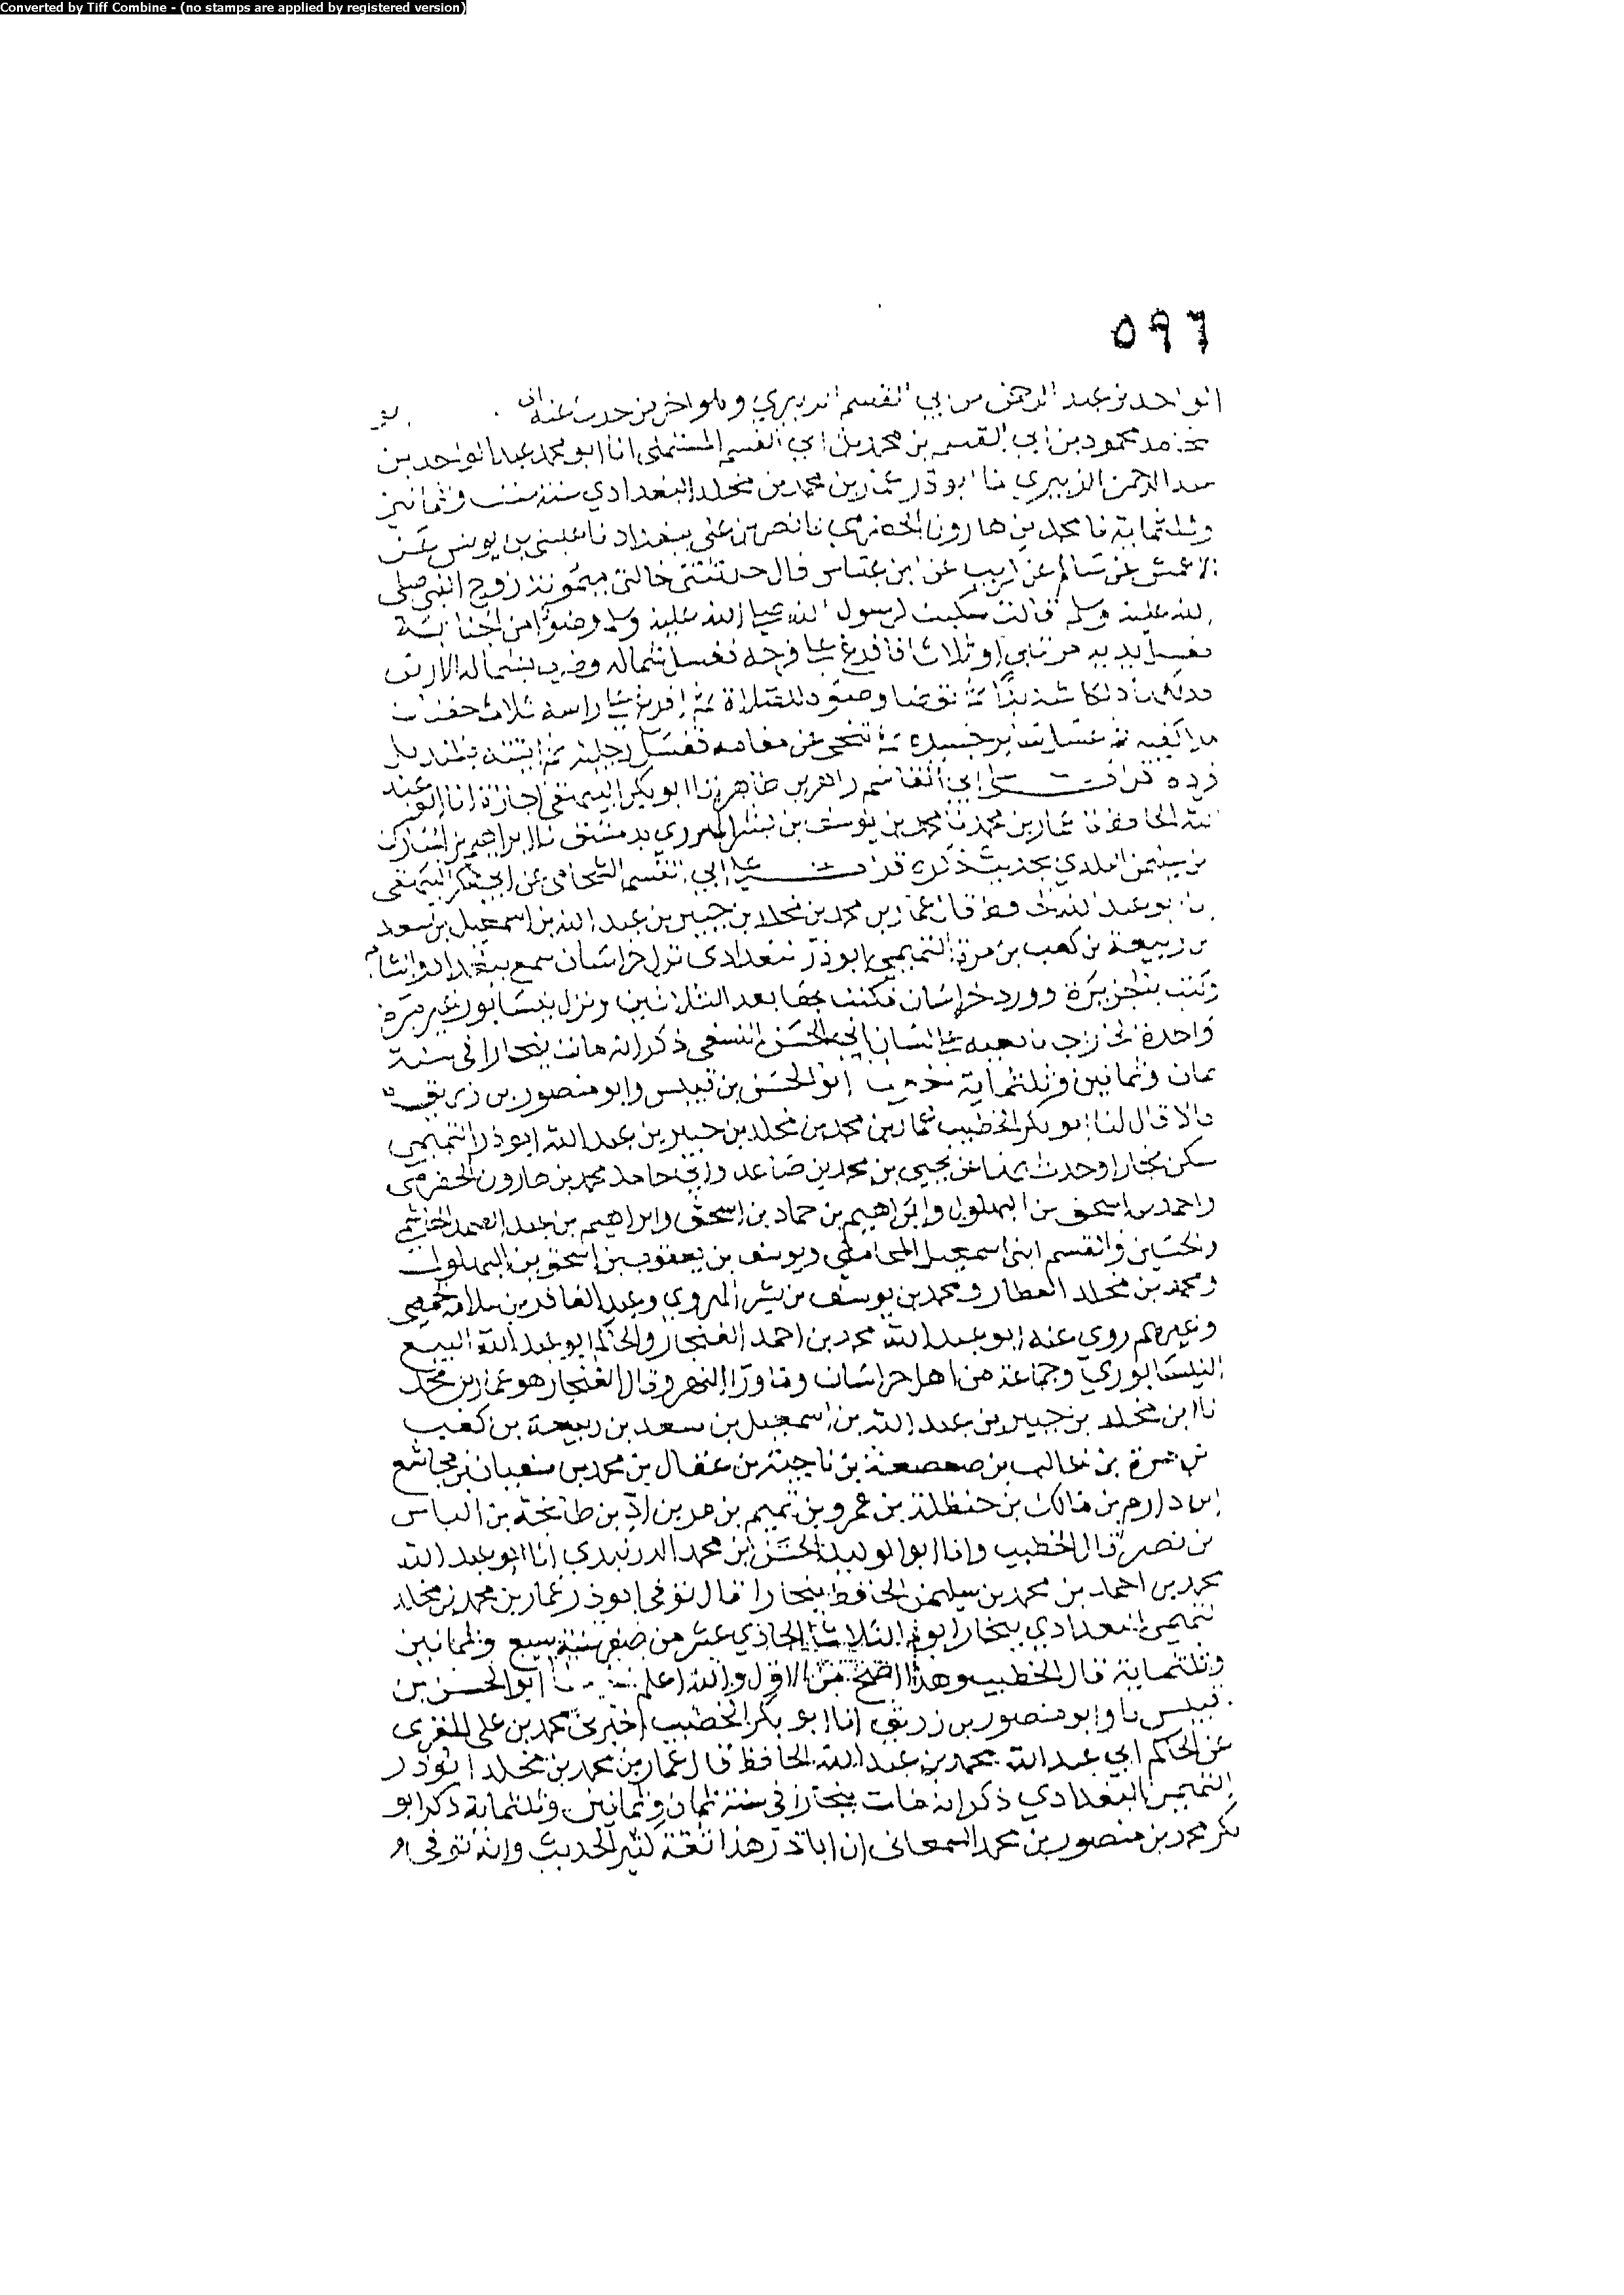 Converted by Tiff Combine - (no stamps are applied by registered version)
٥٩٦
الواحد بن عبد الرحمن بن ابي القسم الزبيري وهو اخر من حدث عنه
محمود بن ابي القسم بن محمد بن ابي القسم المستملي انا ابو محمد عبد الواحد بن
عبد الرحمن الزبيري نا ابو ذر عمار بن محمد بن مخلد البغدادي سنة ست وثمانين
وثلثماية نا محمد بن هارون الحضرمي نا نصر بن علي ببغداد نا عيسى بن يونس عن
الاعمش عن سالم عن كريب عن ابن عباس قال حدثتني خالتي ميمونة زوج النبي صلى
الله عليه وسلم قالت سكبت لرسول الله صلى الله عليه وسلم وضوءا من الجنابة
فغسل يديه مرتين او ثلاث فافرغ على فرجه فغسل بشماله وضرب بشماله الارض
فدلكها دلكا شديدا ثم توضا وضوه للصلاة ثم افرغ على راسه ثلاث حفنات
ثم غسل سائر جسده ثم تنحى عن مقامه فغسل رجليه ثم اتيته بمنديل
فرده قرات على ابي القاسم زاهر بن طاهر انا ابو بكر البيهقي اجازة انا ابو عبد
الله الحافظ نا عمار بن محمد نا محمد بن يوسف بن بشر الهروي بدمشق نا ابراهيم بن
البلدي بحديث ذكره قرات على ابي القسم الشحامي عن ابي بكر البيهقي
انا ابو عبد الله الحافظ قال عمار بن محمد بن مخلد بن جبير بن عبد الله بن اسمعيل بن سعد
بن ربيعة بن كعب بن مرة التميمي ابو ذر بغدادي نزل خراسان سمع ببغداد والشام
وكتب بالجزيرة وورد خراسان فكتب بها بعد الثلاثين ونزل نيسابور غير مرة
واحدة ثم ذكر انه مات ببخارا في سنة
ثمان وثمانين وثلثماية ابو الحسن بن قبيس وابو منصور بن زريق
قالا قال لنا ابو بكر الخطيب عمار بن محمد بن مخلد بن جبير بن عبد الله ابو ذر التميمي
سكن بخارا وحدث بها عن يحيى بن محمد بن صاعد وابي حامد محمد بن هارون الحضرمي
واحمد بن اسحق بن البهلول وابراهيم بن حماد بن اسحق وابراهيم بن عبد الصمد الهاشمي
والحسين والقسم ابني اسمعيل المحاملي ويوسف بن يعقوب بن اسحق بن البهلول
ومحمد بن مخلد العطار ومحمد بن يوسف بن بشر الهروي وعبد الغافر بن سلامة الحمصي
وغيرهم روى عنه ابو عبد الله محمد بن احمد الغنجار والحاكم ابو عبد الله البيع
النيسابوري وجماعة من اهل خراسان وما ورا النهر وقال الغنجار هو عمار بن محمد
بن مخلد بن جبير بن عبد الله بن اسمعيل بن سعد بن ربيعة بن كعب
بن مرة بن غالب بن صعصعة بن ناجية بن عقال بن محمد بن سفيان بن مجاشع
ابن دارم بن مالك بن حنظلة بن عمرو بن تميم بن مر بن اد بن طابخة بن الياس
بن نصر قال الخطيب وانا ابو الوليد الحسن ابن محمد الدربندي انا ابو عبد الله
محمد بن احمد بن محمد بن سليمن الحافظ ببخارا قال توفي ابو ذر عمار بن محمد بن مخلد
التميمي البغدادي ببخارا يوم الثلاثا الحادي عشر من صفر سنة سبع وثمانين
وثلثماية قال الخطيب وهذا اصح من الاول والله اعلم ابو الحسن بن
قبيس نا وابو منصور بن زريق انا ابو بكر الخطيب اخبرني محمد بن علي المقري
عن الحاكم ابي عبد الله محمد بن عبد الله الحافظ قال عمار بن محمد بن مخلد ابو ذر
التميمي البغدادي ذكر انه مات ببخارا في سنة ثمان وثمانين وثلثماية ذكر ابو
بكر محمد بن منصور بن محمد السمعاني ان ابا ذر هذا ثقة كثير الحديث وانه توفي